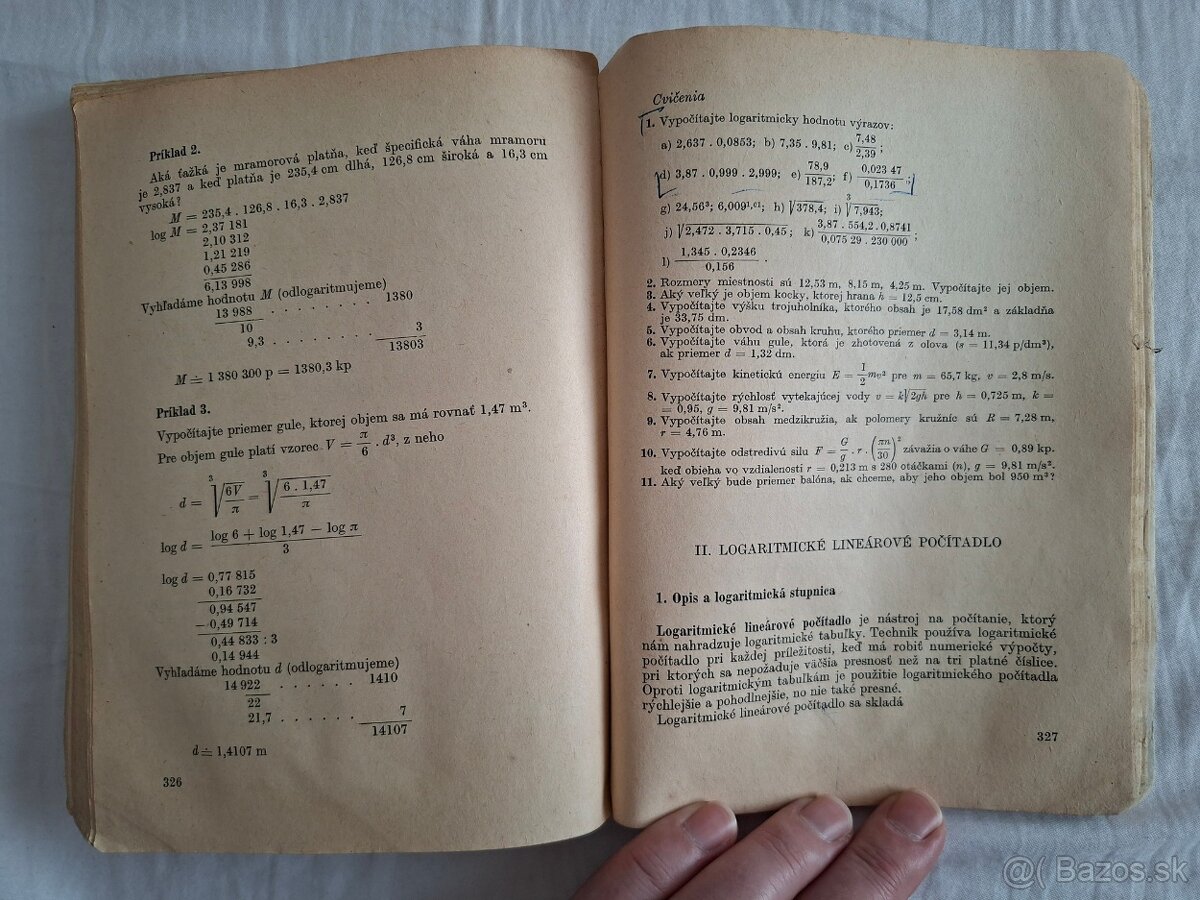 Príklad 2.
Aká ťažká je mramorová platňa, keď špecifická váha mramoru
je 2,837 a keď platňa je 235,4 cm dlhá, 126,8 cm široká a 16,3 cm
vysoká?
M = 235,4 . 126,8 . 16,3 . 2,837
log M = 2,37 181
2,10 312
1,21 219
0,45 286
6,13 998
Vyhľadáme hodnotu M (odlogaritmujeme)
13 988 . . . . . . . . 1380
10
9,3 . . . . . . . 3
13803
M ≐ 1 380 300 p = 1380,3 kp
Príklad 3.
Vypočítajte priemer gule, ktorej objem sa má rovnať 1,47 m³.
Pre objem gule platí vzorec V = π/6 . d³, z neho
d = ∛(6V/π) = ∛(6 . 1,47/π)
log d = (log 6 + log 1,47 − log π)/3
log d = 0,77 815
0,16 732
0,94 547
− 0,49 714
0,44 833 : 3
0,14 944
Vyhľadáme hodnotu d (odlogaritmujeme)
14 922 . . . . . . 1410
22
21,7 . . . . . . 7
14107
d ≐ 1,4107 m
326
Cvičenia
1. Vypočítajte logaritmicky hodnotu výrazov:
a) 2,637 . 0,0853; b) 7,35 . 9,81; c) 7,48/2,39;
d) 3,87 . 0,999 . 2,999; e) 78,9/187,2; f) 0,023 47/0,1736;
g) 24,56³; 6,009¹,⁶¹; h) √378,4; i) ∛7,943;
j) √2,472 . 3,715 . 0,45; k) 3,87 . 554,2 . 0,8741/0,075 29 . 230 000;
l) 1,345 . 0,2346/0,156.
2. Rozmery miestnosti sú 12,53 m, 8,15 m, 4,25 m. Vypočítajte jej objem.
3. Aký veľký je objem kocky, ktorej hrana h = 12,5 cm.
4. Vypočítajte výšku trojuholníka, ktorého obsah je 17,58 dm² a základňa
je 33,75 dm.
5. Vypočítajte obvod a obsah kruhu, ktorého priemer d = 3,14 m.
6. Vypočítajte váhu gule, ktorá je zhotovená z olova (s = 11,34 p/dm³),
ak priemer d = 1,32 dm.
7. Vypočítajte kinetickú energiu E = 1/2 mv² pre m = 65,7 kg, v = 2,8 m/s.
8. Vypočítajte rýchlosť vytekajúcej vody v = k√2gh pre h = 0,725 m, k =
= 0,95, g = 9,81 m/s².
9. Vypočítajte obsah medzikružia, ak polomery kružníc sú R = 7,28 m,
r = 4,76 m.
10. Vypočítajte odstredivú silu F = G/g . r . (πn/30)² závažia o váhe G = 0,89 kp.
keď obieha vo vzdialenosti r = 0,213 m s 280 otáčkami (n), g = 9,81 m/s².
11. Aký veľký bude priemer balóna, ak chceme, aby jeho objem bol 950 m³?
II. LOGARITMICKÉ LINEÁROVÉ POČÍTADLO
1. Opis a logaritmická stupnica
Logaritmické lineárové počítadlo je nástroj na počítanie, ktorý
nám nahradzuje logaritmické tabuľky. Technik používa logaritmické
počítadlo pri každej príležitosti, keď má robiť numerické výpočty,
pri ktorých sa nepožaduje väčšia presnosť než na tri platné číslice.
Oproti logaritmickým tabuľkám je použitie logaritmického počítadla
rýchlejšie a pohodlnejšie, no nie také presné.
Logaritmické lineárové počítadlo sa skladá
327
@( Bazos.sk